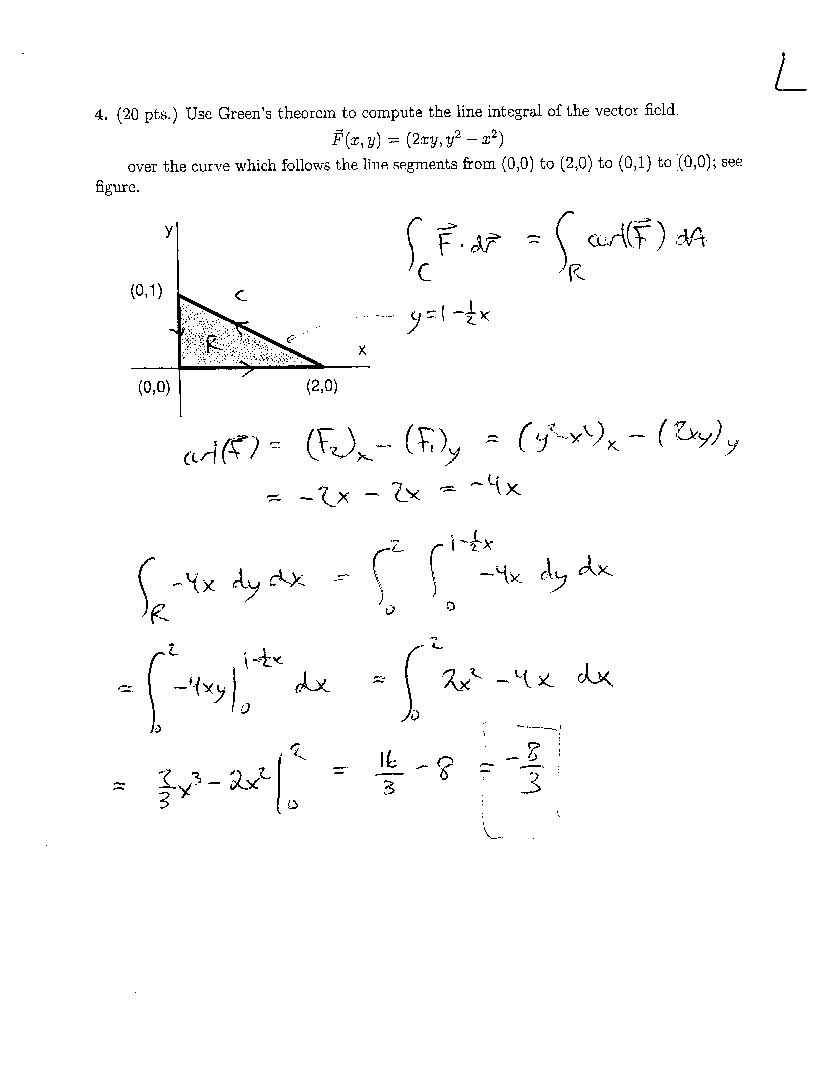 L
4. (20 pts.) Use Green's theorem to compute the line integral of the vector field.
F⃗(x, y) = (2xy, y² − x²)
over the curve which follows the line segments from (0,0) to (2,0) to (0,1) to (0,0); see
figure.
y
∫_C F⃗ · dr⃗ = ∫_R curl(F⃗) dA
(0,1)
C
y = 1 - ½x
R
x
(0,0)
(2,0)
curl(F⃗) = (F₂)ₓ − (F₁)_y = (y² − x²)ₓ − (2xy)_y
= −2x − 2x = −4x
∫_R −4x dy dx = ∫_0^2 ∫_0^{1−½x} −4x dy dx
= ∫_0^2 −4xy |_0^{1−½x} dx = ∫_0^2 2x² − 4x dx
= 2/3 x³ − 2x² |_0^2 = 16/3 − 8 = −8/3